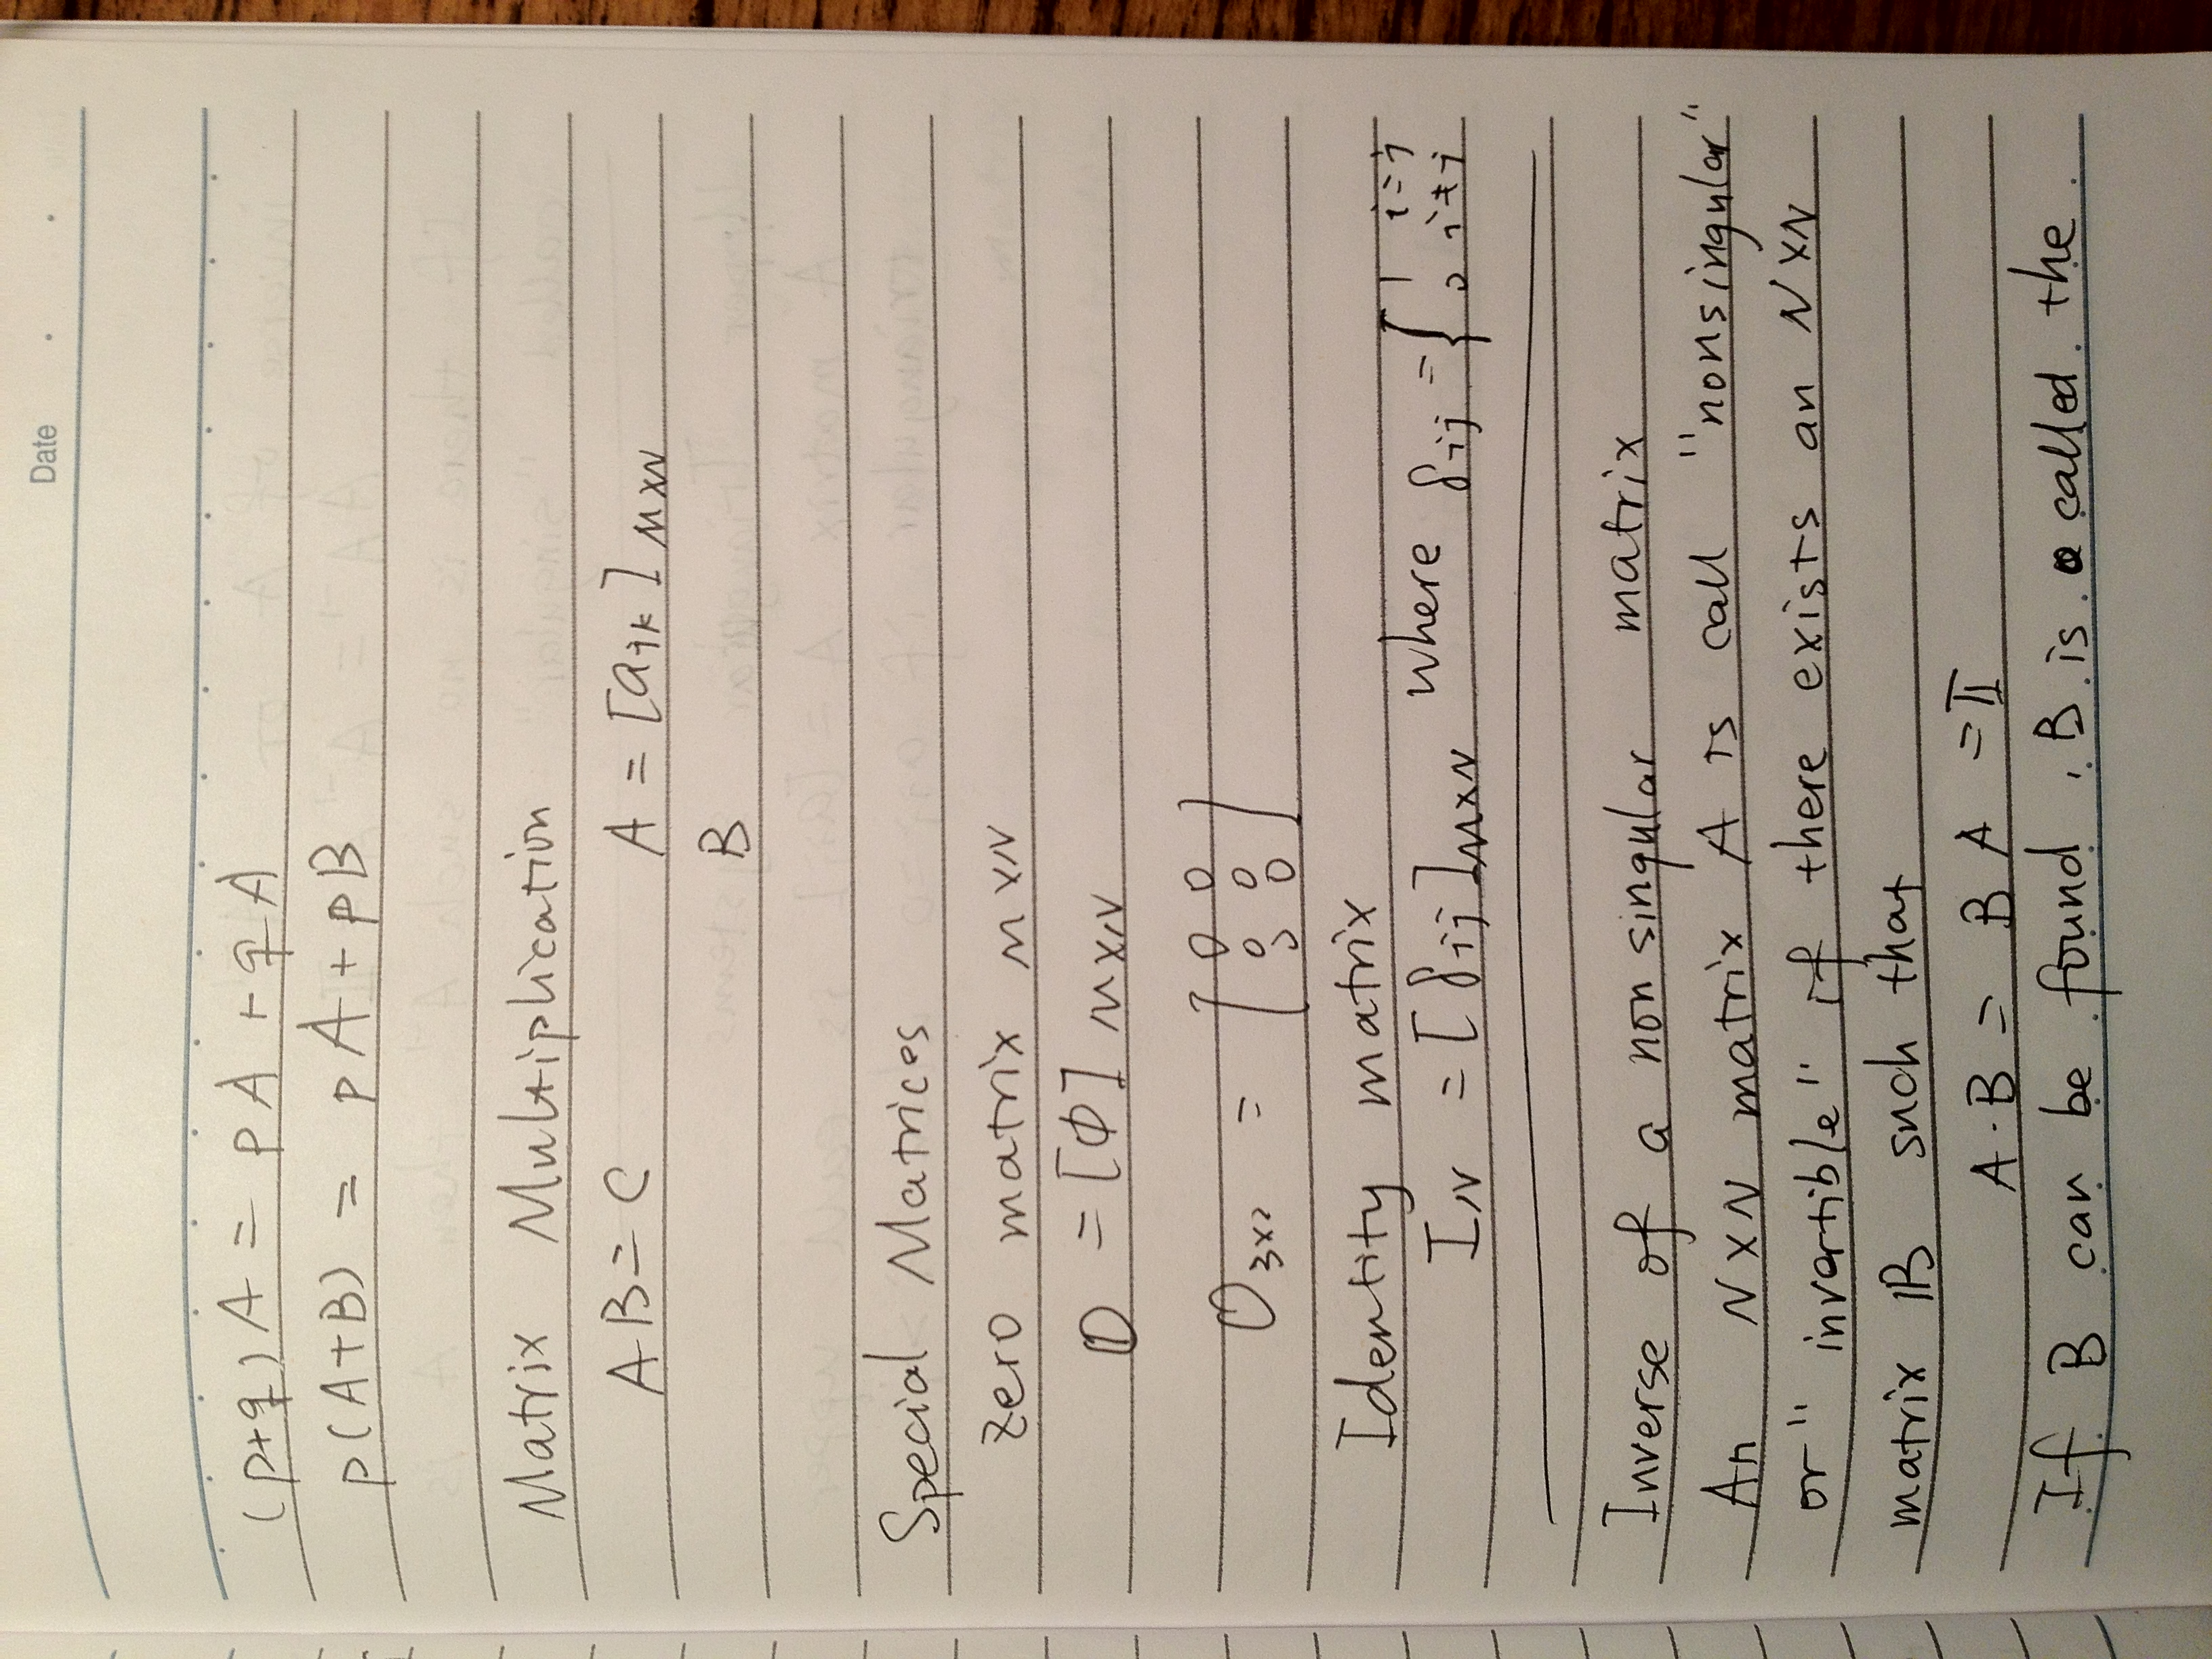 Date
(p+q)A = pA + qA
p(A+B) = pA + pB
Matrix Multiplication
AB = C A = [aik] M×N
B
Special Matrices
zero matrix M×N
O = [Φ] M×N
O3×2 = [0 0
0 0
0 0]
Identity matrix
IN = [δij]N×N where δij = { 1 i=j
0 i≠j
Inverse of a nonsingular matrix
An N×N matrix A is call "nonsingular"
or "invertible" if there exists an N×N
matrix B such that
A·B = BA = I
If B can be found, B is called the